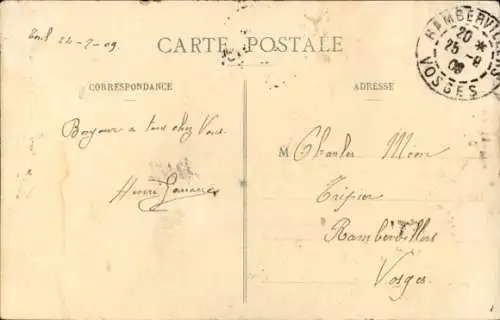 24-7-09
CARTE POSTALE
RAMBERVILLERS
20
25 -8
09
VOSGES
CORRESPONDANCE
ADRESSE
Bonjour a tous chez Vous.
Henri
M Charles
Tripier
Rambervillers
Vosges.